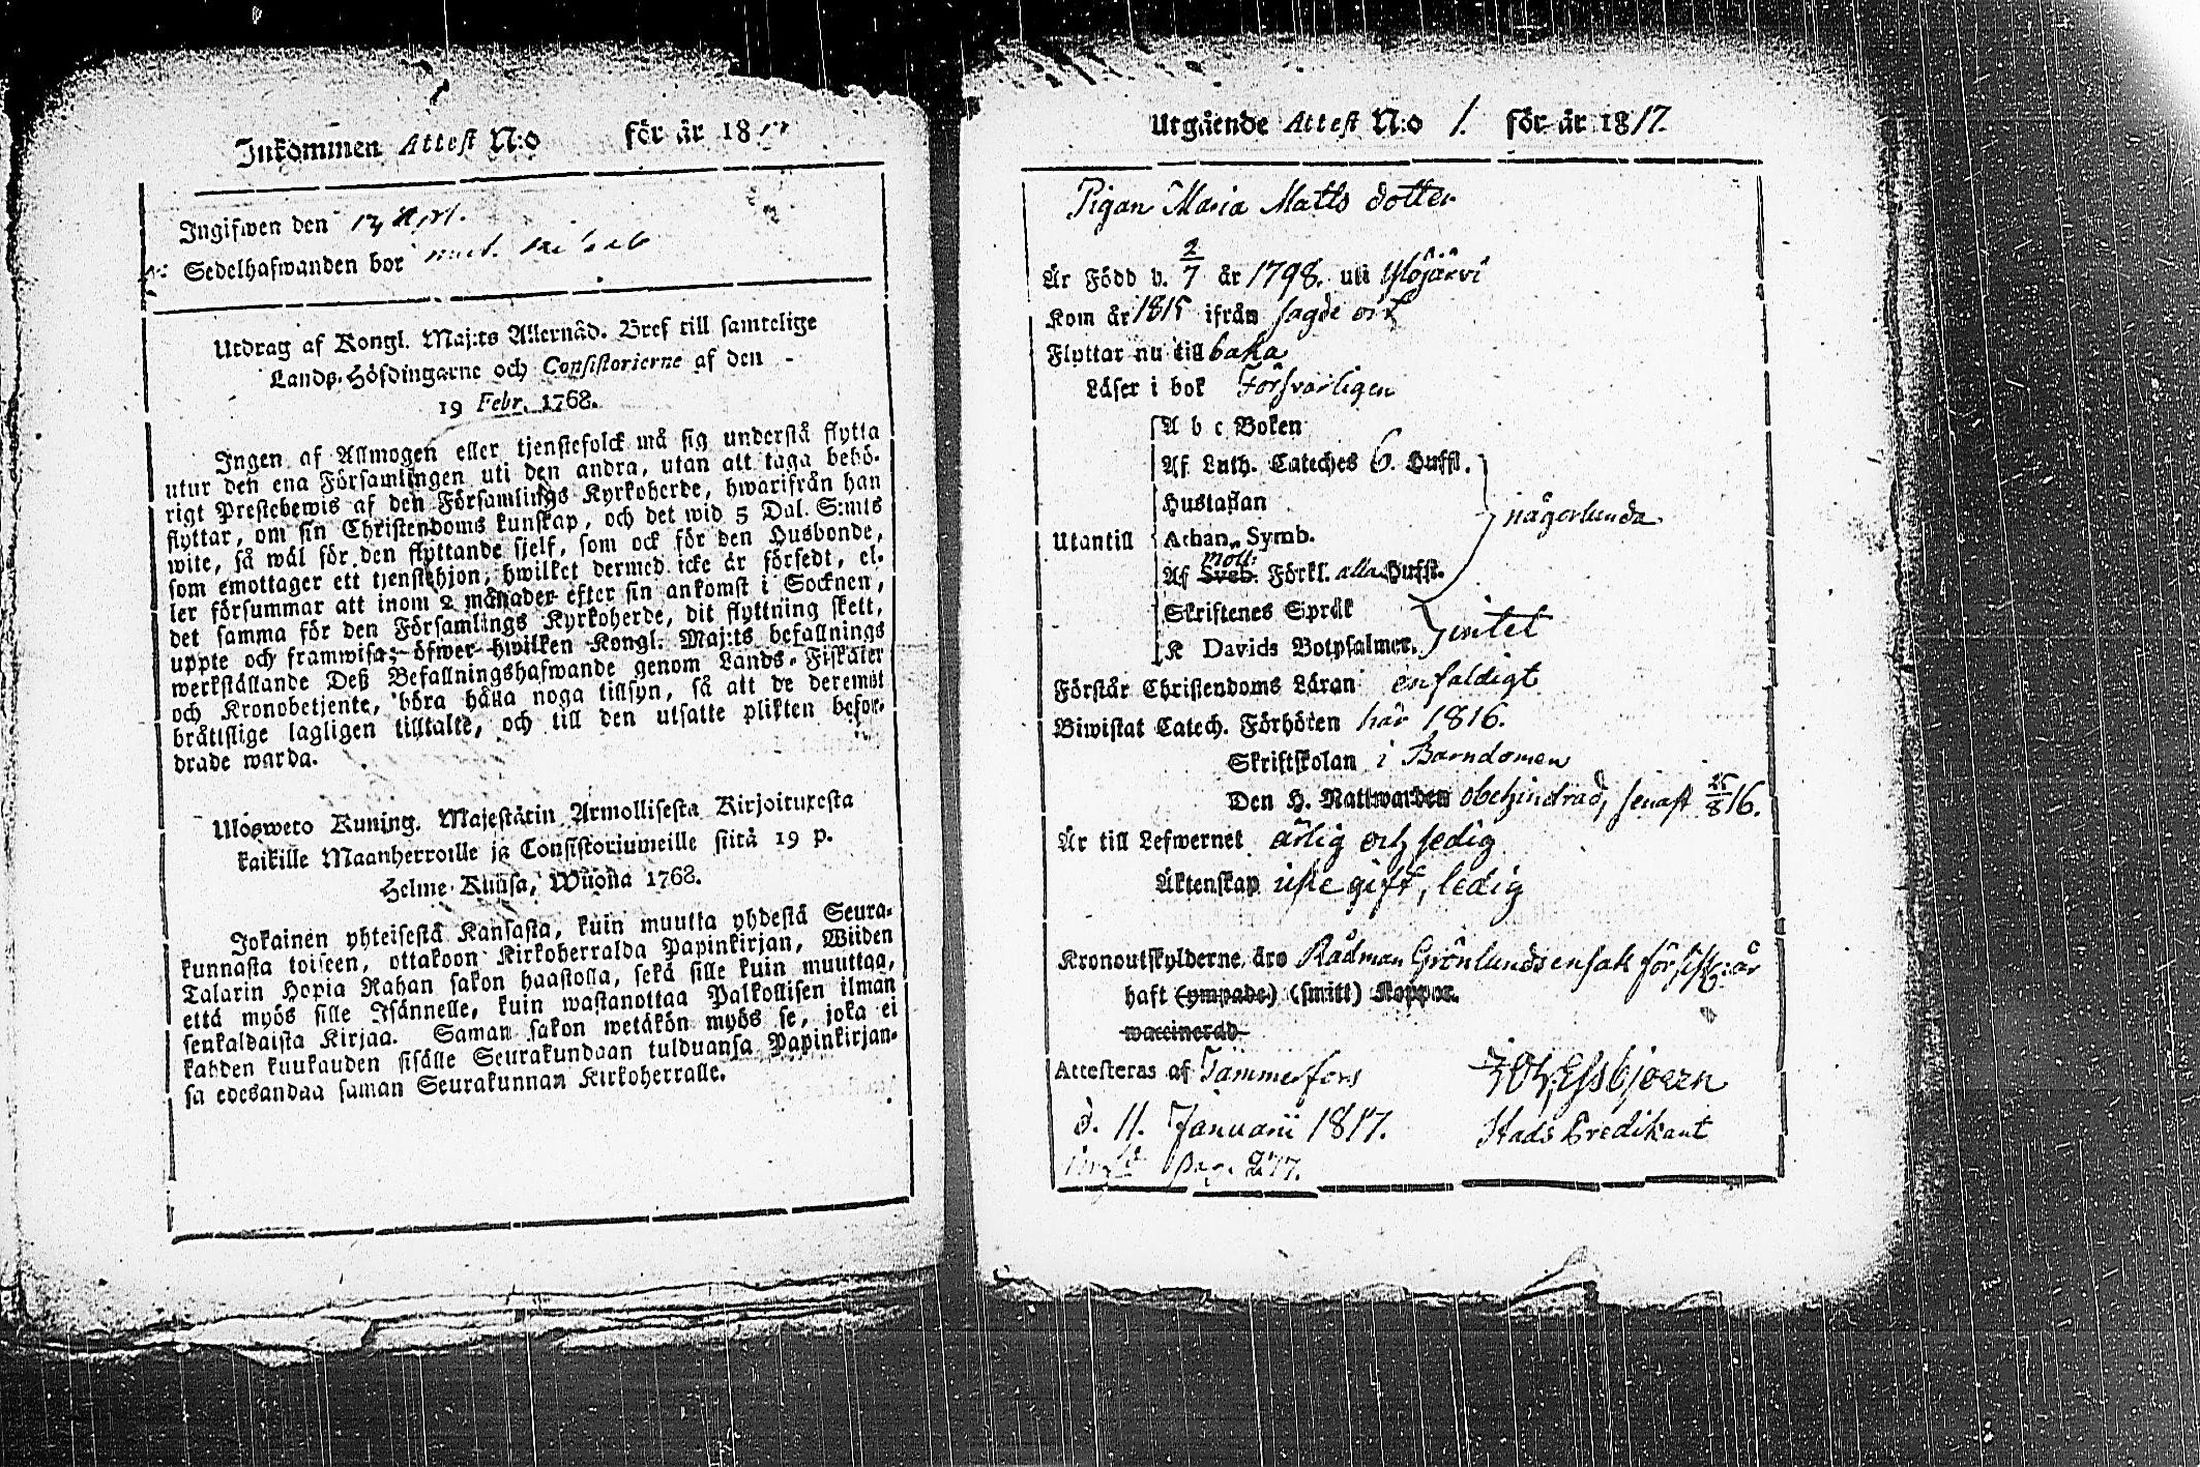 Inkommen Attest N:o för år 18
Ingifwen den 17 Apri.
Sedelhafwanden bor
Utdrag af Kongl. Maj:ts Allernåd. Bref till samtelige
Lands-Höfdingarne och Consistorierne af den
19 Febr. 1768.
Ingen af Allmogen eller tjenstefolck må sig understå flytta
utur den ena Församlingen uti den andra, utan att taga behö-
rigt Prestebewis af den Församlings Kyrkoherde, hwarifrån han
flyttar, om sin Christendoms kunskap, och det wid 5 Dal. S:mts
wite, så wäl för den flyttande sjelf, som ock för den Husbonde,
som emottager ett tjenstehjon, hwilket dermed icke är försedt, el-
ler försummar att inom 2 månader efter sin ankomst i Socknen,
det samma för den Församlings Kyrkoherde, dit flyttning skett,
uppte och framwisa; öfwer hwilken Kongl. Maj:ts befallnings
werkställande Deß Befallningshafwande genom Lands-Fiskaler
och Kronobetjente, böra hålla noga tillsyn, så att de deremot
bråttslige lagligen tilltalte, och till den utsatte plikten befor-
drade warda.
Ulosweto Kuning. Majestätin Armollisesta Kirjoituxesta
kaikille Maanherroille ja Consistoriumeille siitä 19 p.
Helme-Kuusa, Wuonna 1768.
Jokainen yhteisestä Kansasta, kuin muutta yhdestä Seura-
kunnasta toiseen, ottakoon Kirkoherralda Papinkirjan, Wiiden
Talarin Hopia Rahan sakon haastolla, sekä sille kuin muuttaa,
että myös sille Isännelle, kuin wastanottaa Palkollisen ilman
senkaldaista Kirjaa. Saman sakon wetäkön myös se, joka ei
kahden kuukauden sisälle Seurakundaan tulduansa Papinkirjan-
sa edesandaa saman Seurakunnan Kirkoherralle.
Utgående Attest N:o 1. för år 1817.
Pigan Maria Matts dotter
Är Född d. 2/7 år 1798. uti Ylöjärvi
Kom år 1815 ifrån sagde ort
Flyttar nu till baka
Läser i bok Försvarligen
A b c Boken
Af Luth. Cateches 6. Hufst.
Hustaflan
någorlunda
Utantill Athan. Symb.
Af Sveb. Moll: Förkl. alla Hufst.
Skriftenes Språk
K Davids Botpsalmer. intet
Förstår Christendoms Läran enfaldigt
Biwistat Catech. Förhören här 1816.
Skriftskolan i Barndomen
Den H. Nattwarden obehindrad, senast 25/8 16.
Är till Lefwernet ärlig och sedig
Äktenskap icke gift, ledig
Kronoutskylderne äro Rådman Grönlunds ensak för sist: år
haft (ympade) (smitt) Koppor. 16.
waccinerad
Attesteras af Tammerfors
d. 11. Januarii 1817. Stads Predikant
Pag. 277.